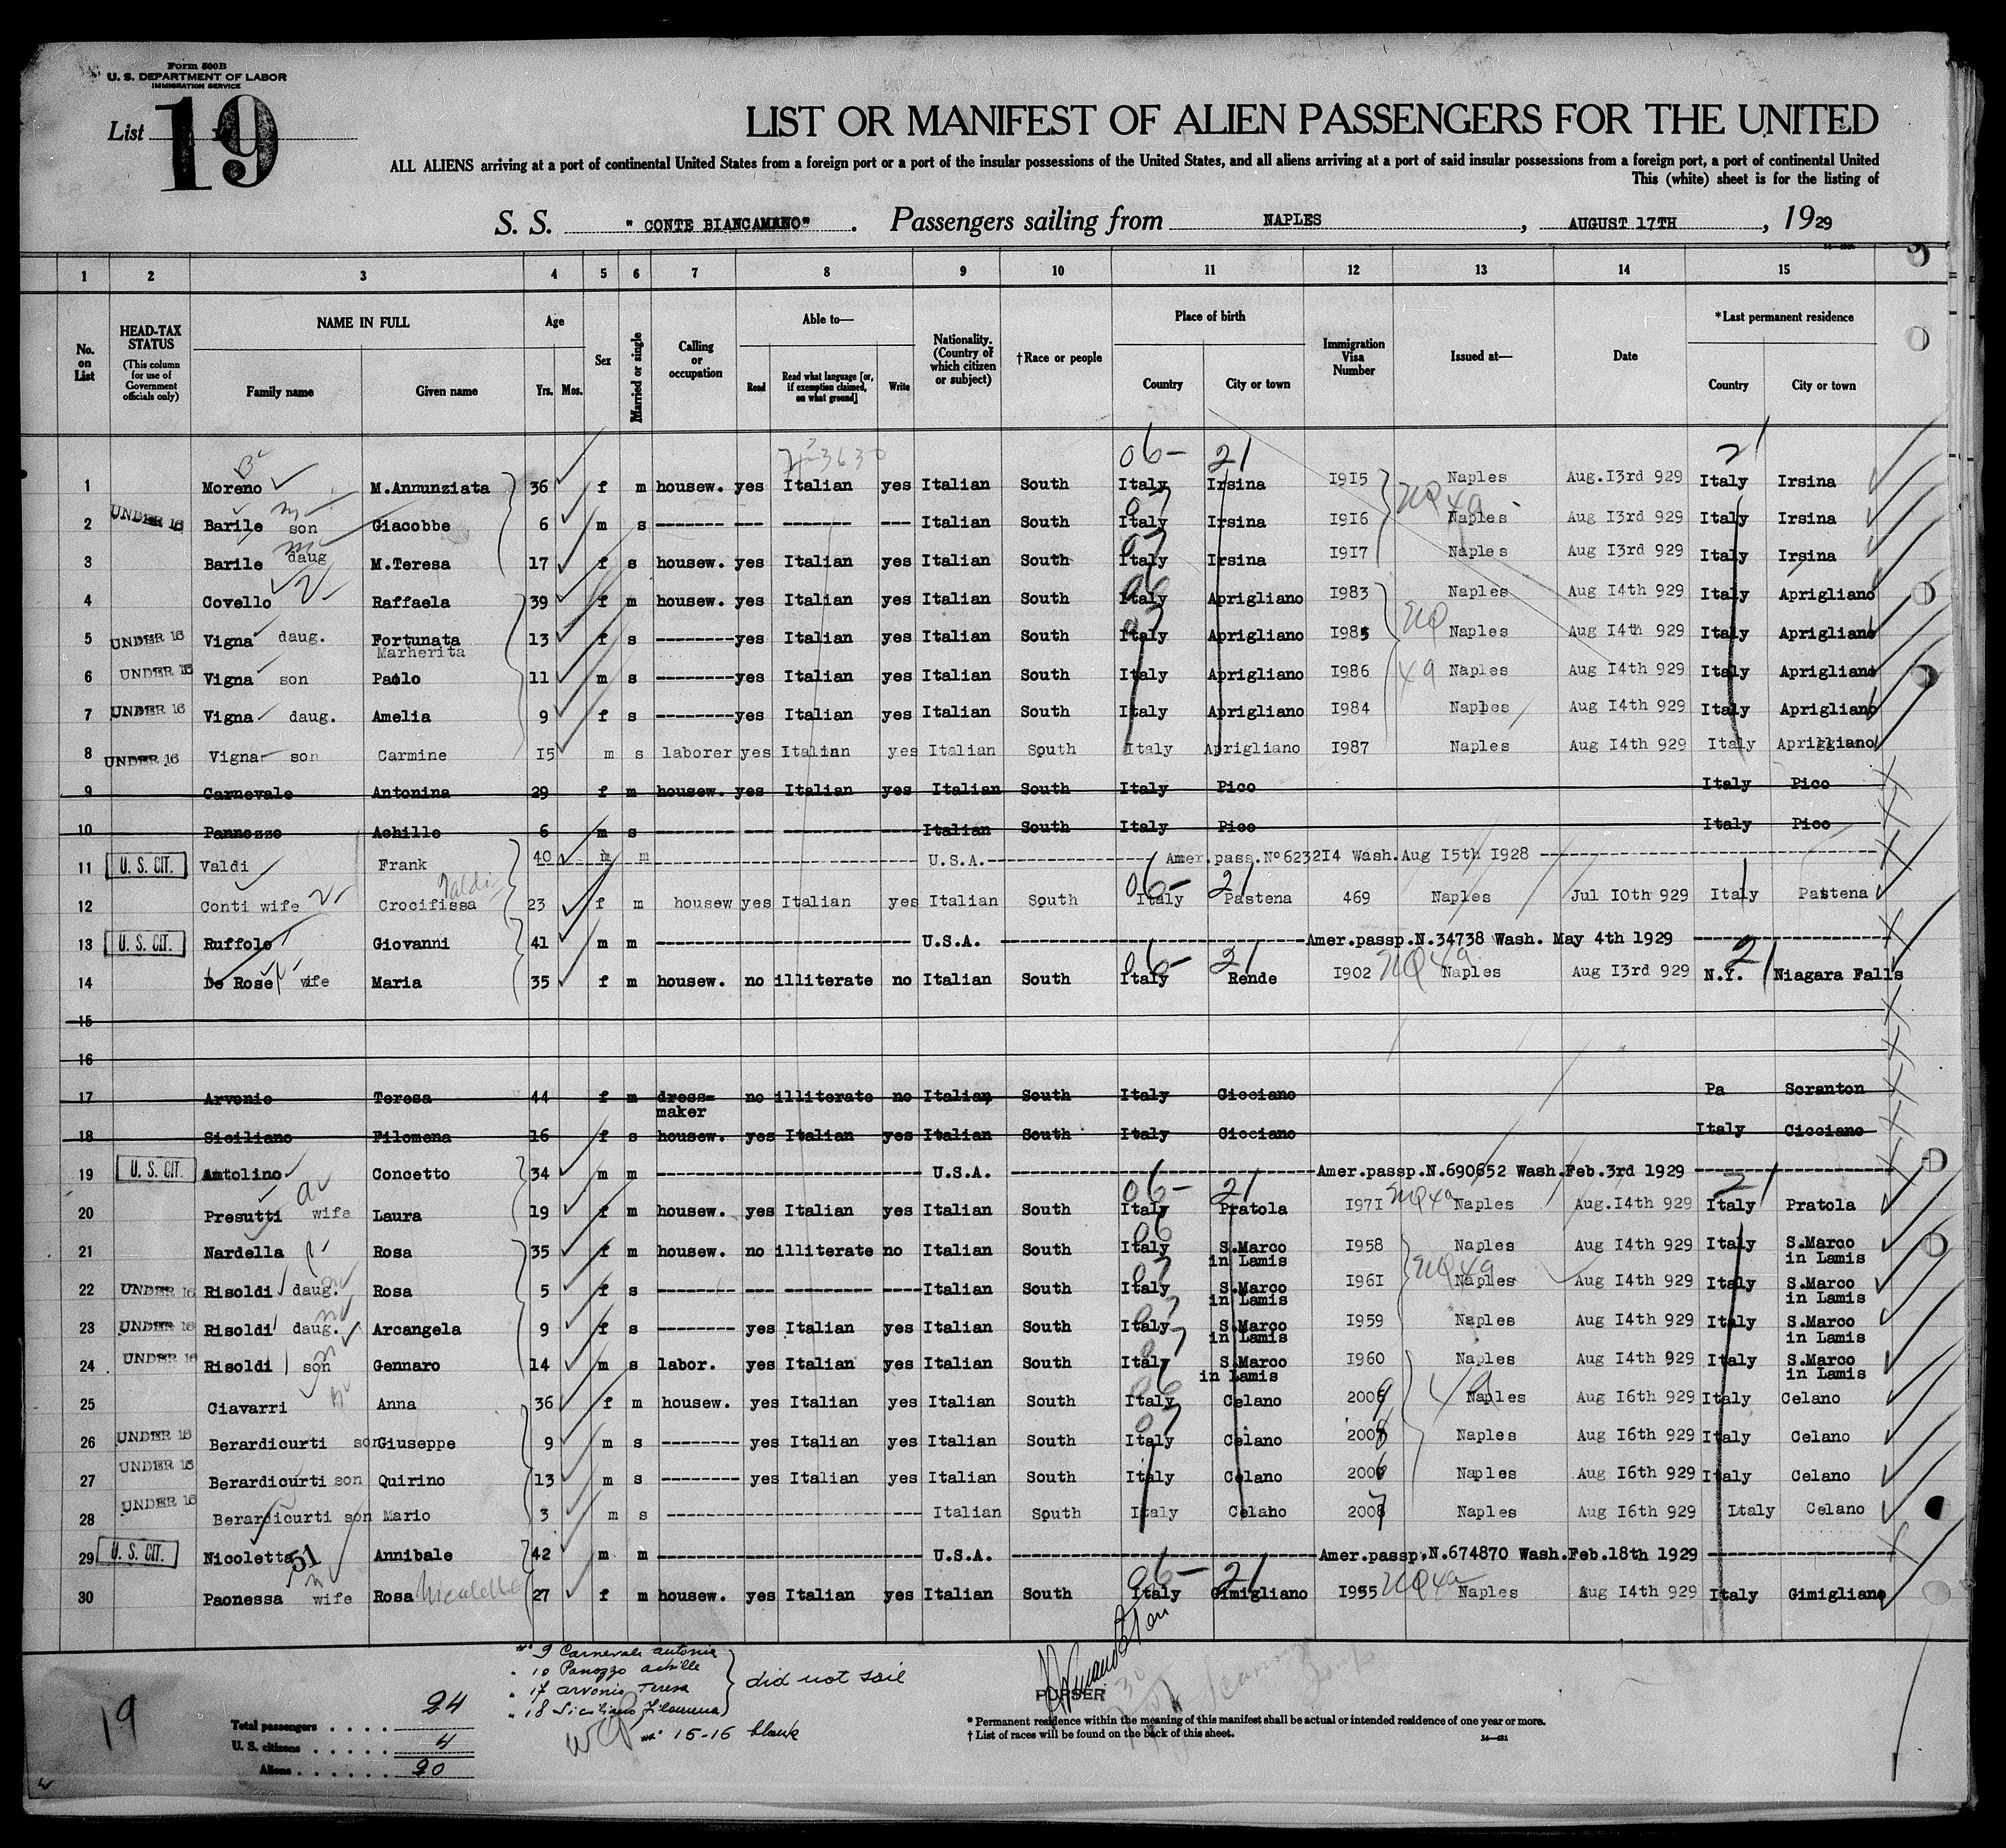 Form 500B
U. S. DEPARTMENT OF LABOR
IMMIGRATION SERVICE
List 19
LIST OR MANIFEST OF ALIEN PASSENGERS FOR THE UNITED
ALL ALIENS arriving at a port of continental United States from a foreign port or a port of the insular possessions of the United States, and all aliens arriving at a port of said insular possessions from a foreign port, a port of continental United
This (white) sheet is for the listing of
S. S. "CONTE BIANCAMANO". Passengers sailing from NAPLES, AUGUST 17TH, 1929
1 2 3 4 5 6 7 8 9 10 11 12 13 14 15
No. on List
HEAD-TAX STATUS (This column for use of Government officials only)
NAME IN FULL Family name Given name
Age Yrs. Mos.
Sex
Married or single
Calling or occupation
Able to— Read Read what language [or, if exemption claimed, on what ground] Write
Nationality. (Country of which citizen or subject)
†Race or people
Place of birth Country City or town
Immigration Visa Number
Issued at—
Date
*Last permanent residence Country City or town
06- 21 21
1 Moreno M.Annunziata 36 f m housew. yes Italian yes Italian South Italy Irsina I9I5 Naples Aug.I3rd 929 Italy Irsina
2 UNDER 16 Barile son Giacobbe 6 m s ------- --- ------- --- Italian South Italy Irsina I9I6 Naples Aug I3rd 929 Italy Irsina
3 Barile daug M.Teresa 17 f s housew. yes Italian yes Italian South Italy Irsina I9I7 Naples Aug I3rd 929 Italy Irsina
4 Covello Raffaela 39 f m housew. yes Italian yes Italian South Italy Aprigliano I983 Naples Aug I4th 929 Italy Aprigliano
5 UNDER 16 Vigna daug. Fortunata Marherita 13 f s -------- yes Italian yes Italian South Italy Aprigliano I985 Naples Aug I4th 929 Italy Aprigliano
6 UNDER 16 Vigna son Paolo 11 m s -------- yes Italian yes Italian South Italy Aprigliano I986 Naples Aug I4th 929 Italy Aprigliano
7 UNDER 16 Vigna daug. Amelia 9 f s -------- yes Italian yes Italian South Italy Aprigliano I984 Naples Aug I4th 929 Italy Aprigliano
8 UNDER 16 Vigna son Carmine I5 m s laborer yes Italian yes Italian South Italy Aprigliano I987 Naples Aug I4th 929 Italy Apriggiano
9 Carnevale Antonina 29 f m housew. yes Italian yes Italian South Italy Pico Italy Pico
10 Pannozzo Achille 6 m s -------- --- --------- --- Italian South Italy Pico Italy Pico
11 U. S. CIT. Valdi Frank 40 m m -------- U.S.A. -------- Amer.pass.Nº6232I4 Wash.Aug I5th I928 --------
12 Conti wife Crocifissa Valdi 23 f m housew yes Italian yes Italian South Italy Pastena 469 Naples Jul IOth 929 Italy Pastena
13 U. S. CIT. Ruffolo Giovanni 41 m m -------- U.S.A. -------- Amer.passp.N.34738 Wash. May 4th 1929 --------
14 De Rose wife Maria 35 f m housew. no illiterate no Italian South Italy Rende I902 Naples Aug I3rd 929 N.Y. Niagara Falls
15
16
17 Arvonio Teresa 44 f m dress-maker no illiterate no Italian South Italy Cicciano Pa Scranton
18 Siciliano Filomena 16 f s housew. yes Italian yes Italian South Italy Cicciano Italy Cicciano
19 U. S. CIT. Antolino Concetto 34 m m -------- U.S.A. -------- Amer.passp.N.690652 Wash.Feb.3rd 1929 --------
20 Presutti wife Laura 19 f m housew. yes Italian yes Italian South Italy Pratola I97I Naples Aug.I4th 929 Italy Pratola
21 Nardella Rosa 35 f m housew. no illiterate no Italian South Italy S.Marco in Lamis I958 Naples Aug I4th 929 Italy S.Marco in Lamis
22 UNDER 16 Risoldi daug. Rosa 5 f s -------- -- --------- ---- Italian South Italy S.Marco in Lamis I96I Naples Aug I4th 929 Italy S.Marco in Lamis
23 UNDER 16 Risoldi daug. Arcangela 9 f s -------- yes Italian yes Italian South Italy S.Marco in Lamis I959 Naples Aug I4th 929 Italy S.Marco in Lamis
24 UNDER 16 Risoldi son Gennaro 14 m s labor. yes Italian yes Italian South Italy S.Marco in Lamis I960 Naples Aug I4th 929 Italy S.Marco in Lamis
25 Ciavarri Anna 36 f m housew. yes Italian yes Italian South Italy Celano 2009 Naples Aug I6th 929 Italy Celano
26 UNDER 16 Berardicurti son Giuseppe 9 m s -------- yes Italian yes Italian South Italy Celano 2008 Naples Aug I6th 929 Italy Celano
27 UNDER 16 Berardicurti son Quirino 13 m s -------- yes Italian yes Italian South Italy Celano 2006 Naples Aug I6th 929 Italy Celano
28 UNDER 16 Berardicurti son Mario 3 m s -------- Italian South Italy Celano 2007 Naples Aug I6th 929 Italy Celano
29 U. S. CIT. Nicoletta Annibale 42 m m -------- U.S.A. -------- Amer.passp.N.674870 Wash.Feb.18th 1929 --------
51
30 Paonessa wife Rosa Nicoletta 27 f m housew. yes Italian yes Italian South Italy Gimigliano I955 Naples Aug I4th 929 Italy Gimigliano
" 9 Carnevale Antonia
" 10 Panozzo Achille
" 17 Arvonio Teresa
" 18 Siciliano Filomena
did not sail
15-16 blank
PURSER
19
Total passengers . . . . 24
U. S. citizens . . . . . 4
Aliens . . . . . . 20
* Permanent residence within the meaning of this manifest shall be actual or intended residence of one year or more.
† List of races will be found on the back of this sheet.